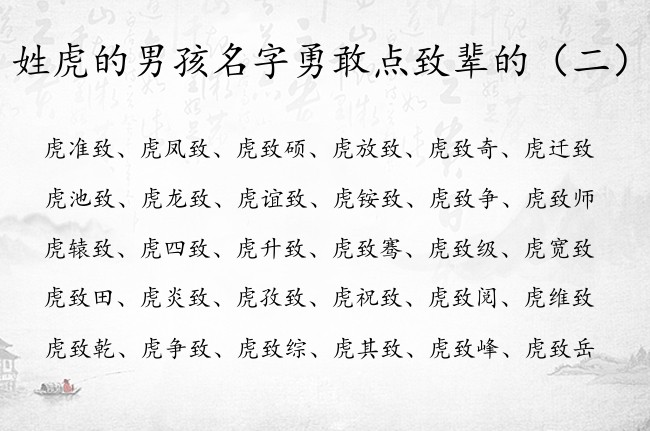 姓虎的男孩名字勇敢点致辈的（二）
虎准致、虎凤致、虎致硕、虎放致、虎致奇、虎迁致
虎池致、虎龙致、虎谊致、虎铵致、虎致争、虎致师
虎辕致、虎四致、虎升致、虎致骞、虎致级、虎宽致
虎致田、虎炎致、虎孜致、虎祝致、虎致阅、虎维致
虎致乾、虎争致、虎致综、虎其致、虎致峰、虎致岳